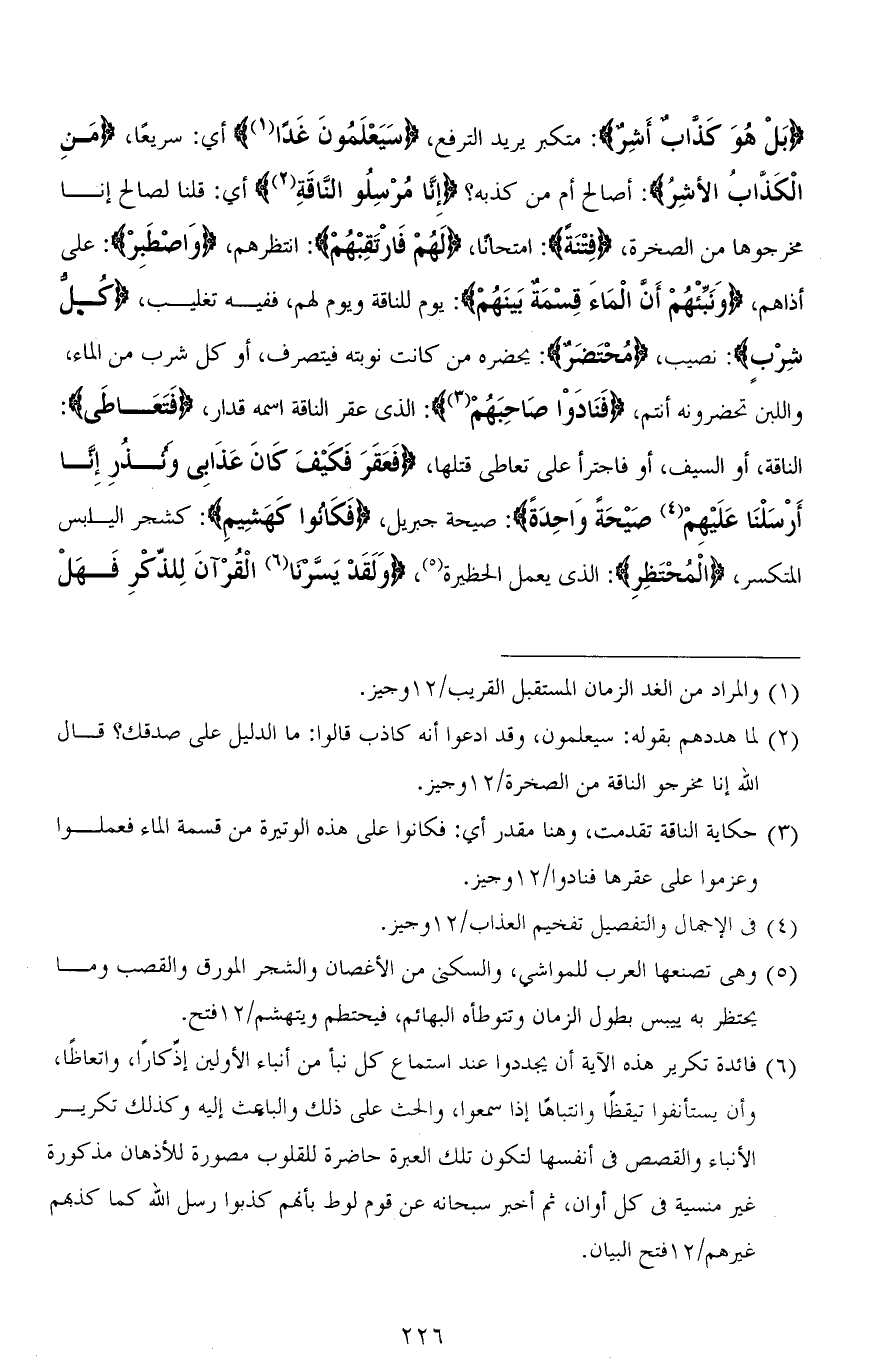 ﴿بَلْ هُوَ كَذَّابٌ أَشِرٌ﴾: متكبر يريد الترفع، ﴿سَيَعْلَمُونَ غَدًا(١)﴾ أي: سريعًا، ﴿مَنِ
الْكَذَّابُ الأَشِرُ﴾: أصالح أم من كذبه؟ ﴿إِنَّا مُرْسِلُو النَّاقَةِ(٢)﴾ أي: قلنا لصالح إنا
مخرجوها من الصخرة، ﴿فِتْنَةً﴾: امتحانًا، ﴿لَهُمْ فَارْتَقِبْهُمْ﴾: انتظرهم، ﴿وَاصْطَبِرْ﴾: على
أذاهم، ﴿وَنَبِّئْهُمْ أَنَّ الْمَاءَ قِسْمَةٌ بَينَهُمْ﴾: يوم للناقة ويوم لهم، ففيه تغليب، ﴿كُلُّ
شِرْبٍ﴾: نصيب، ﴿مُحْتَضَرٌ﴾: يحضره من كانت نوبته فيتصرف، أو كل شرب من الماء،
واللبن تحضرونه أنتم، ﴿فَنَادَوْا صَاحِبَهُمْ(٣)﴾: الذى عقر الناقة اسمه قدار، ﴿فَتَعَاطَى﴾:
الناقة، أو السيف، أو فاجترأ على تعاطى قتلها، ﴿فَعَقَرَ فَكَيْفَ كَانَ عَذَابِى وَنُذُرِ إِنَّا
أَرْسَلْنَا عَلَيْهِمْ(٤) صَيْحَةً وَاحِدَةً﴾: صيحة جبريل، ﴿فَكَانُوا كَهَشِيمِ﴾: كشجر اليابس
المتكسر، ﴿الْمُحْتَظِرِ﴾: الذى يعمل الحظيرة(٥)، ﴿وَلَقَدْ يَسَّرْنَا(٦) الْقُرْآنَ لِلذِّكْرِ فَهَلْ
(١) والمراد من الغد الزمان المستقبل القريب/١٢وجيز.
(٢) لما هددهم بقوله: سيعلمون، وقد ادعوا أنه كاذب قالوا: ما الدليل على صدقك؟ قال
الله إنا مخرجو الناقة من الصخرة/١٢وجيز.
(٣) حكاية الناقة تقدمت، وهنا مقدر أي: فكانوا على هذه الوتيرة من قسمة الماء فعملوا
وعزموا على عقرها فنادوا/١٢وجيز.
(٤) فى الإجمال والتفصيل تفخيم العذاب/١٢وجيز.
(٥) وهى تصنعها العرب للمواشي، والسكنى من الأغصان والشجر المورق والقصب وما
يحتظر به ييبس بطول الزمان وتتوطأه البهائم، فيحتطم ويتهشم/١٢فتح.
(٦) فائدة تكرير هذه الآية أن يجددوا عند استماع كل نبأ من أنباء الأولين إذِّكارًا، واتعاظًا،
وأن يستأنفوا تيقظًا وانتباهًا إذا سمعوا، والحث على ذلك والباعث إليه وكذلك تكرير
الأنباء والقصص فى أنفسها لتكون تلك العبرة حاضرة للقلوب مصورة للأذهان مذكورة
غير منسية فى كل أوان، ثم أخبر سبحانه عن قوم لوط بأنهم كذبوا رسل الله كما كذبهم
غيرهم/١٢فتح البيان.
٢٢٦